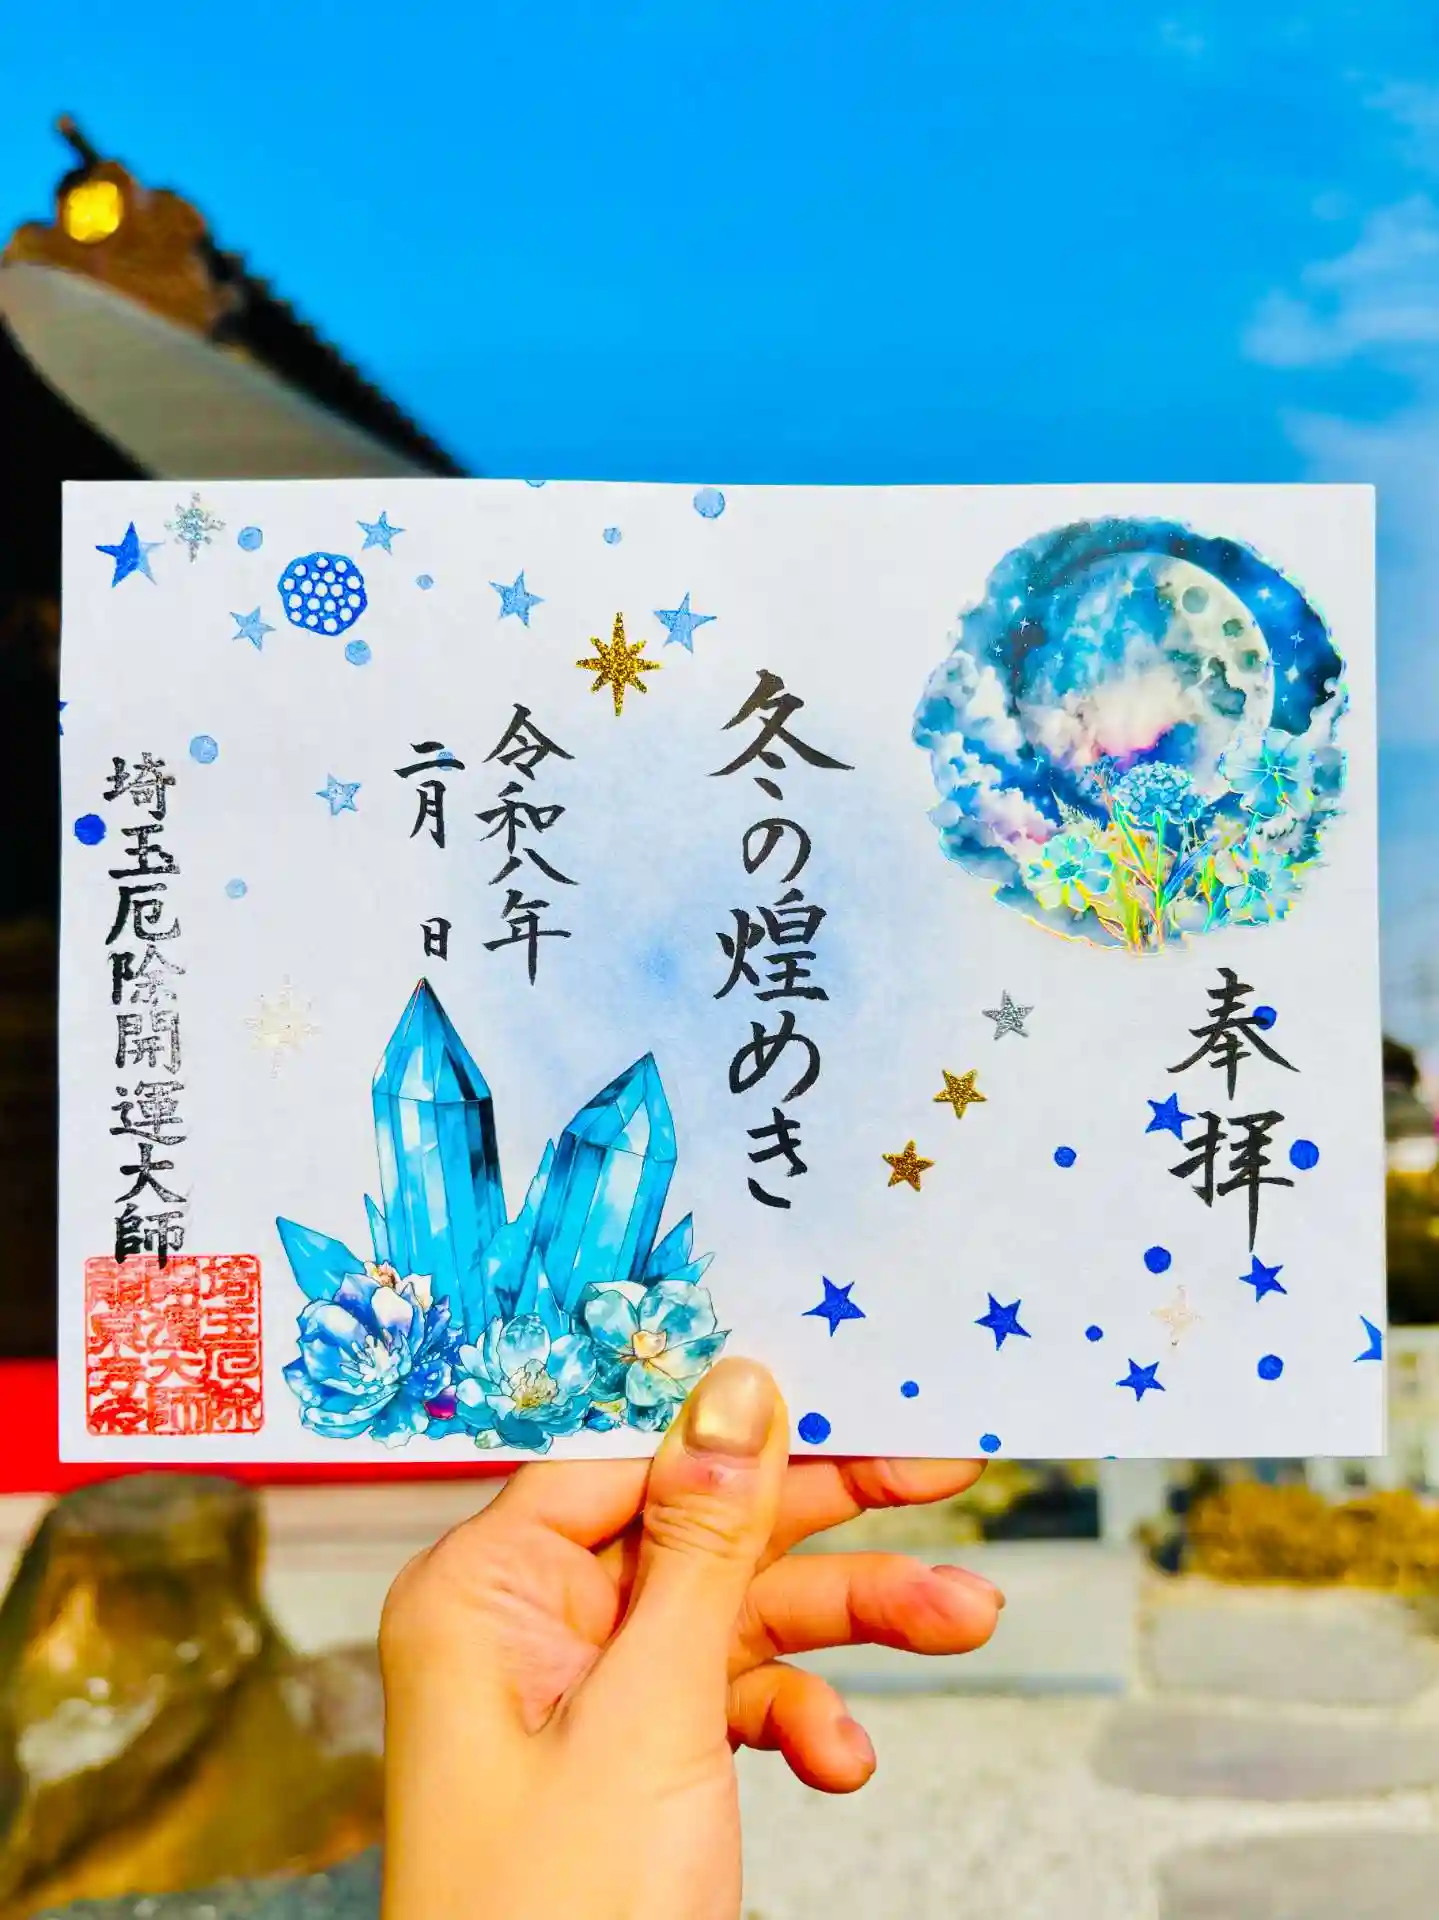 奉拝
冬の煌めき
令和八年
二月 日
埼玉厄除開運大師
埼玉厄除
開運大師
龍泉寺印